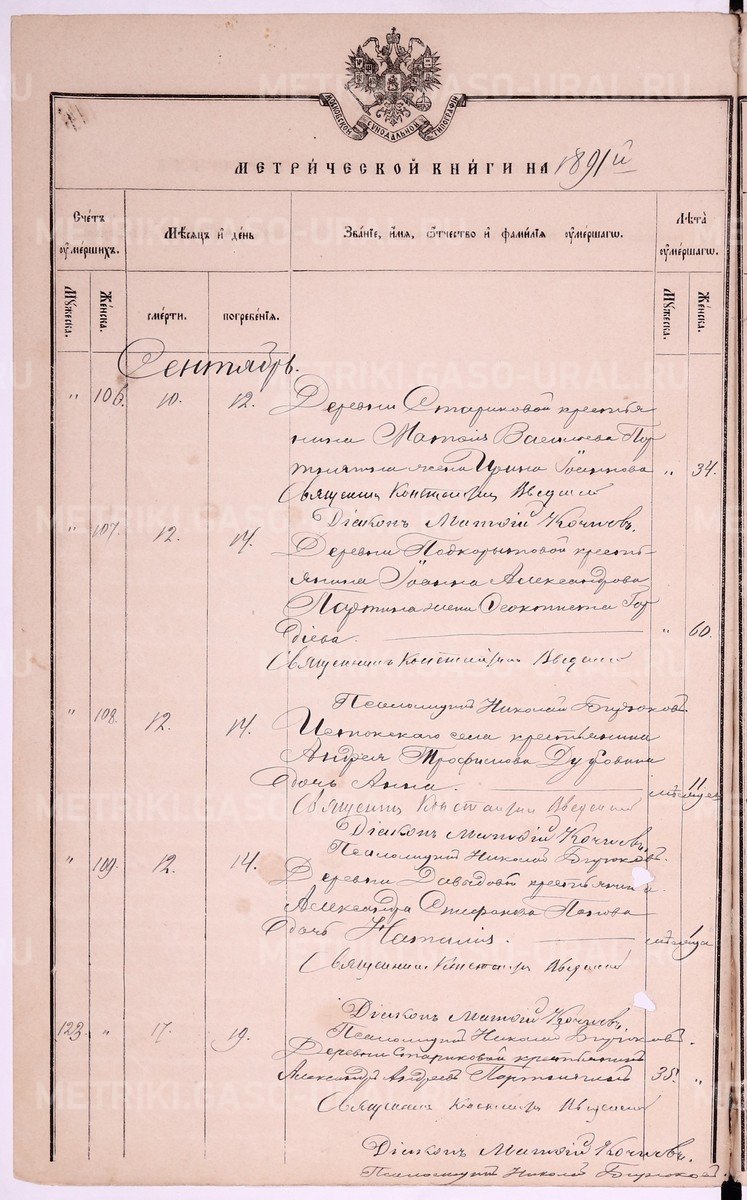 МОСКОВСКОЙ СУНОДАЛЬНОЙ ТИПОГРАФІИ
МЕТРИЧЕСКОЙ КНИГИ НА 1891й
Счетъ умершихъ.
Мѣсяцъ и день
Званіе, имя, отчество и фамилія умершаго.
Лѣта умершаго.
Мужеска.
Женска.
смерти.
погребенія.
Мужеска.
Женска.
Сентябрь.
" 106. 10. 12. Деревни Стариковой крестья
нина Матѳія Васильева Пор
тнягина жена Ирина Іоаннова " 34.
Священникъ Константинъ Введенскій
Діаконъ Матѳій Кочневъ.
" 107. 12. 14. Деревни Подкорытовой кресть
янина Іоанна Александрова
Партина жена Ѳеоктиста Гор
діева. " 60.
Священникъ Константинъ Введенскій
Псаломщикъ Николай Бирюковъ
" 108. 12. 14. Истокскаго села крестьянина
Андрея Трофимова Дубовкина
дочь Анна. 11 мѣсяцев
Священникъ Константинъ Введенскій
Діаконъ Матѳій Кочневъ.
Псаломщикъ Николай Бирюковъ.
" 109. 12. 14. Деревни Давыдовой крестьянина
Александра Стефанова Попова
дочь Наталія. 1 мѣсяца
Священникъ Константинъ Введенскій
Діаконъ Матѳій Кочневъ.
Псаломщикъ Николай Бирюковъ.
123. " 17. 19. Деревни Стариковой крестьянинъ
Александръ Андреевъ Портнягинъ 35. "
Священникъ Константинъ Введенскій
Діаконъ Матѳій Кочневъ.
Псаломщикъ Николай Бирюковъ.
METRIKI.GASO-URAL.RU